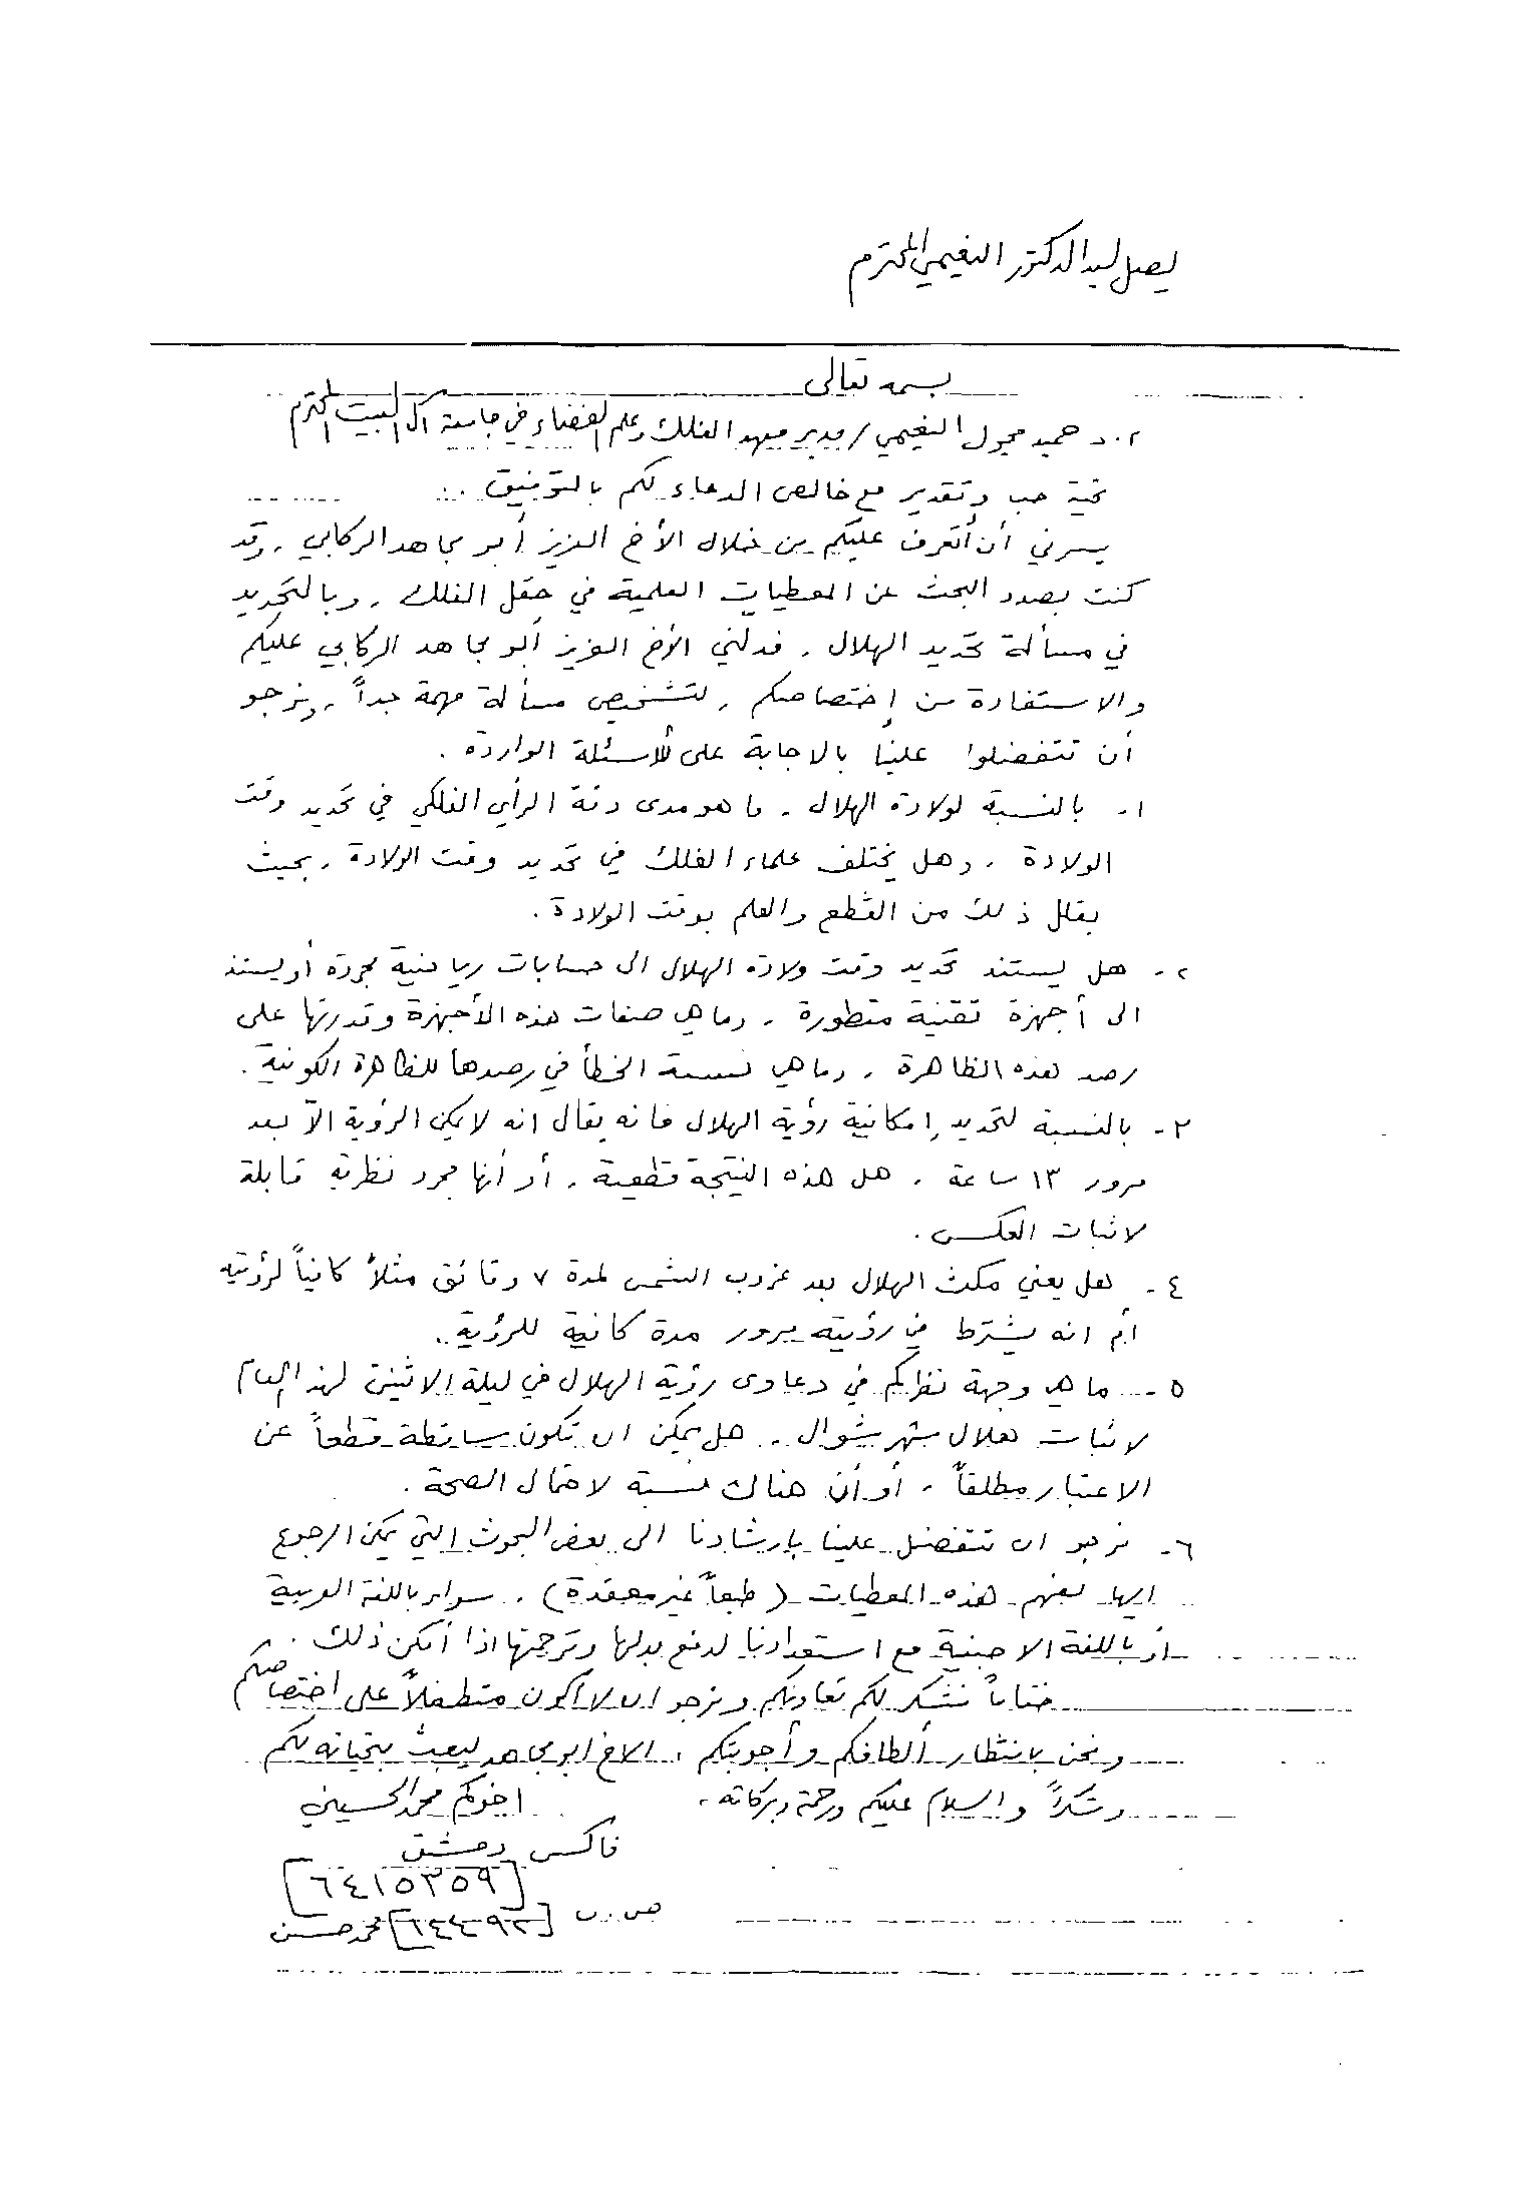 يصل ليد الدكتور النعيمي المحترم
بسمه تعالى
أ.د حميد مجول النعيمي / مدير معهد الفلك وعلم الفضاء في جامعة آل البيت المحترم
تحية حب وتقدير مع خالص الدعاء لكم بالتوفيق ..
يسرني أن أتعرف عليكم من خلال الأخ العزيز أبو مجاهد الركابي ، وقد
كنت بصدد البحث عن المعطيات العلمية في حقل الفلك ، وبالتحديد
في مسألة تحديد الهلال ، فدلني الأخ العزيز أبو مجاهد الركابي عليكم
والاستفادة من إختصاصكم ، لتشخيص مسألة مهمة جداً ، ونرجو
أن تتفضلوا علينا بالاجابة على الأسئلة الواردة .
١- بالنسبة لولادة الهلال ، ما هو مدى دقة الرأي الفلكي في تحديد وقت
الولادة ، وهل يختلف علماء الفلك في تحديد وقت الولادة ، بحيث
يقلل ذلك من القطع والعلم بوقت الولادة .
٢- هل يستند تحديد وقت ولادة الهلال الى حسابات رياضية مجردة أو يستند
الى أجهزة تقنية متطورة ، وما هي صفات هذه الأجهزة وقدرتها على
رصد هذه الظاهرة ، وما هي نسبة الخطأ في رصدها للظاهرة الكونية .
٣- بالنسبة لتحديد إمكانية رؤية الهلال فانه يقال انه لا يمكن الرؤية الاّ بعد
مرور ١٣ ساعة ، هل هذه النتيجة قطعية ، أو أنها مجرد نظرية قابلة
لاثبات العكس .
٤- هل يعني مكث الهلال بعد غروب الشمس لمدة ٧ دقائق مثلاً كافياً لرؤيته
أم انه يشترط في رؤيته مرور مدة كافية للرؤية ..
٥- ما هي وجهة نظركم في دعاوى رؤية الهلال في ليلة الاثنين لهذا العام
لاثبات هلال شهر شوال ، هل يمكن ان تكون ساقطة قطعاً عن
الاعتبار مطلقاً ، أو أن هناك نسبة لاحتمال الصحة .
٦- نرجو ان تتفضل علينا بإرشادنا الى بعض البحوث التي يمكن الرجوع
اليها لفهم هذه المعطيات ( طبعاً غير معقدة ) ، سواء باللغة العربية
أو باللغة الاجنبية مع استعدادنا لدفع بدلها وترجمتها اذا أمكن ذلك .
ختاماً نشكر لكم تعاونكم ونرجو ان لا أكون متطفلاً على اختصاصكم
ونحن بانتظار ألطافكم وأجوبتكم ، الاخ ابو مجاهد يبعث بتحياته لكم
وشكراً والسلام عليكم ورحمة وبركاته ،
اخوكم محمد الحسيني
فاكس دمشق
[٦٤١٥٣٥٩]
ص.ب [٦٤٤٩٢] محمد حسن